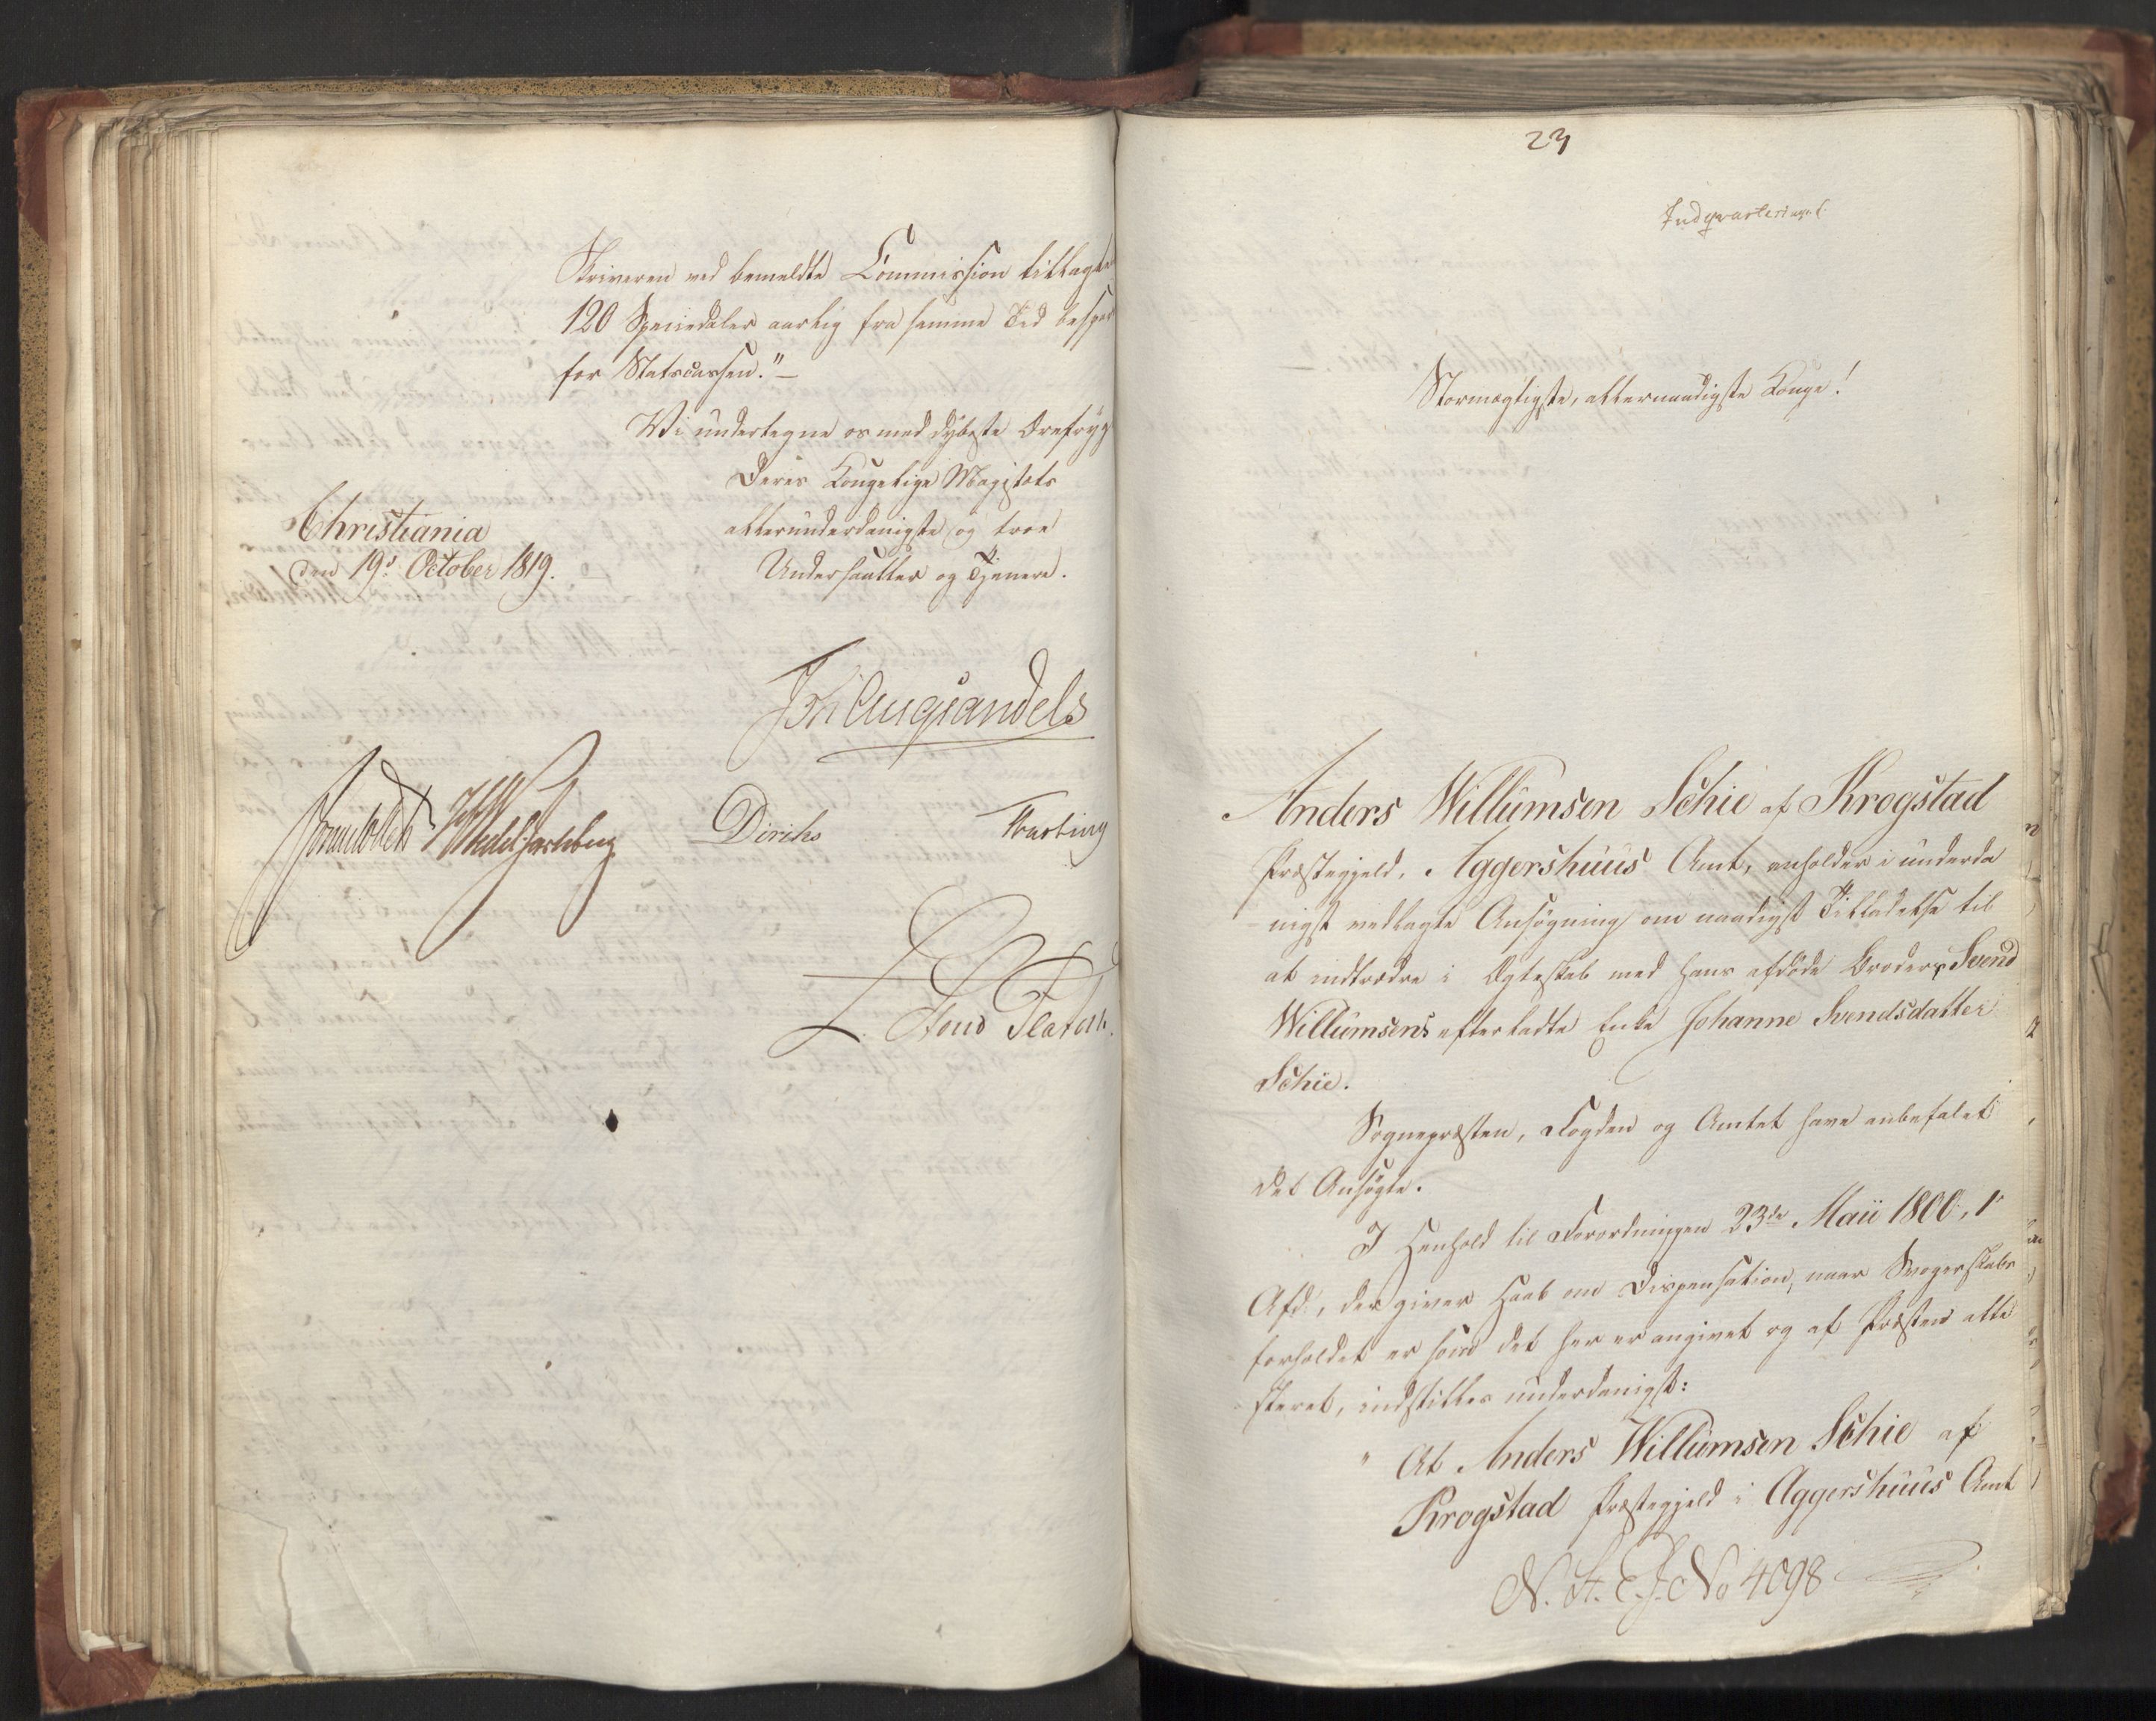 Skriveren ved bemeldte Commission tillagte
120 Speciedaler aarlig fra samme Tid bespar
for Statscassen."
Vi undertegne os med dybeste Ærefrygt
Deres Kongelige Majestæts
allerunderdanigste og troe
Undersaatter og Tjenere.
Christiania
den 19de October 1819.
Joh Aug Sandels
Sommerfeldt HWedel Jarlsberg Diriks Motzfeldt
L. Stoud Platou.
23
Indqvarteringsf.
Stormægtigste, allernaadigste Konge!
Anders Willumsen Schie af Krogstad
Præstegjeld, Aggershuus Amt, anholder i underda
nigst vedlagte Ansøgning om naadigst Tilladelse til
at indtræde i Ægteskab med hans afdøde Broders Svend
Willumsens efterladte Enke Johanne Svendsdatter
Schie.
Sognepræsten, Fogden og Amtet have anbefalet
det Ansøgte.
I Henhold til Forordningen 23de Maii 1800, 1ste
Afd:, der giver Haab om Dispensation, naar Svogerskabs
forholdet er som det her er angivet og af Præsten atte
steret, indstilles underdanigst:
" At Anders Willumsen Schie af
Krogstad Præstegjeld i Aggershuus Amt
N. St. E. J. No 4098